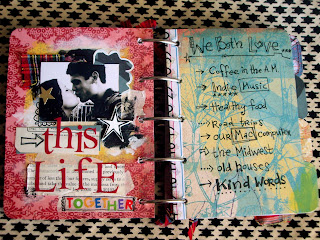 this
LiFE
TOGETHER
We Both Love...
→ Coffee in the A.M.
→ Indie Music
→ Healthy food
→ Road trips
→ our Mac computer
→ the Midwest
→ old houses
→ Kind Words